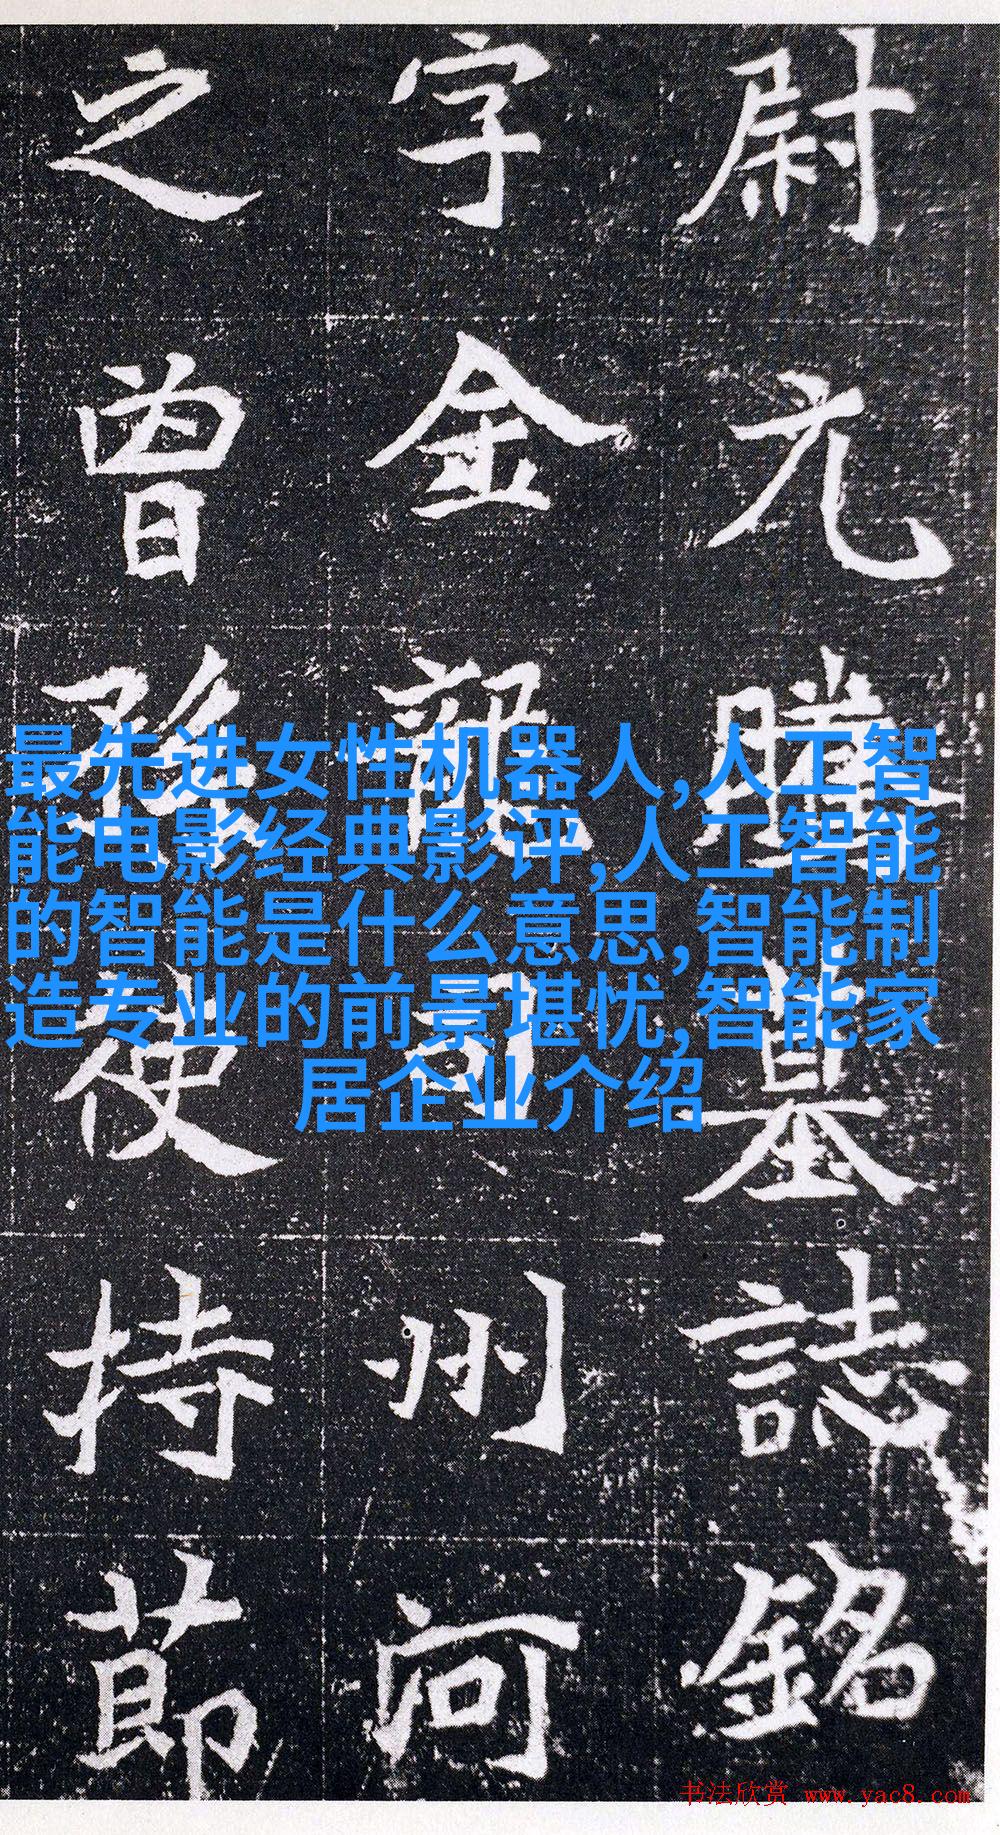 尉元墓誌銘
字金司州河
之曾孫使持節
最先进女性机器人,人工智
能电影经典影评,人工智能
的智能是什么意思,智能制
造专业的前景堪忧,智能家
居企业介绍
书法欣赏 www.yac8.com